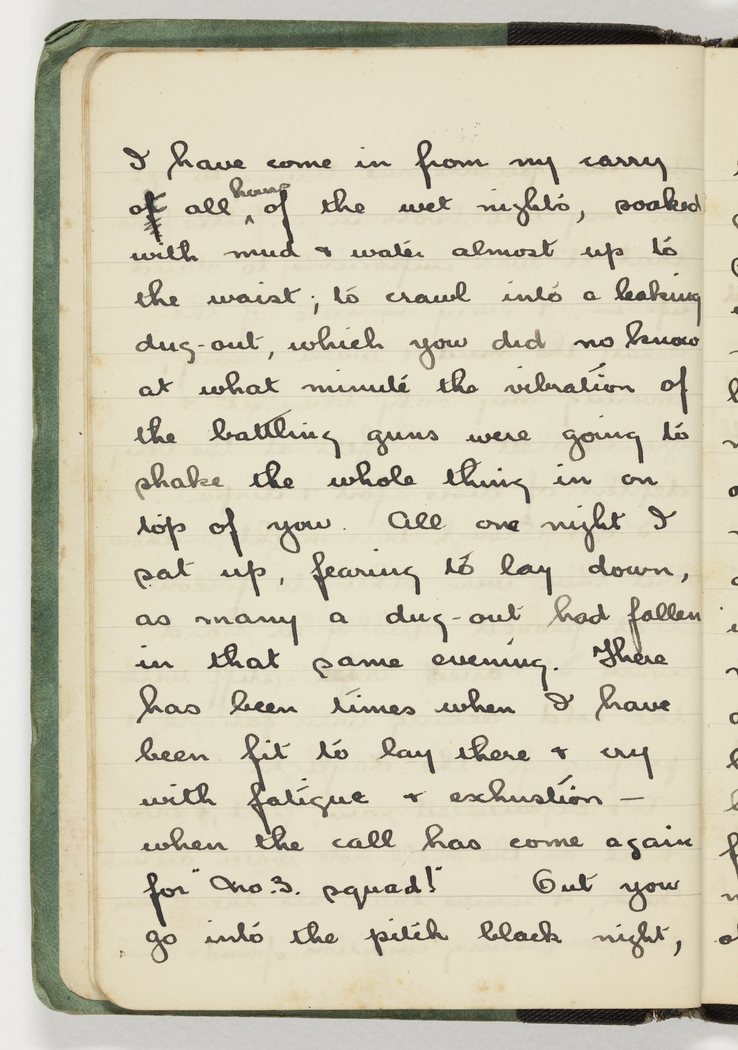 I have come in from my carry
of all hours of the wet nights, soaked
with mud & water almost up to
the waist; to crawl into a leaking
dug-out, which you did no know
at what minute the vibration of
the battling guns were going to
shake the whole thing in on
top of you. All one night I
sat up, fearing to lay down,
as many a dug-out had fallen
in that same evening. There
has been times when I have
been fit to lay there & cry
with fatigue & exhustion —
when the call has come again
for "No. 3. squad!" Out you
go into the pitch black night,